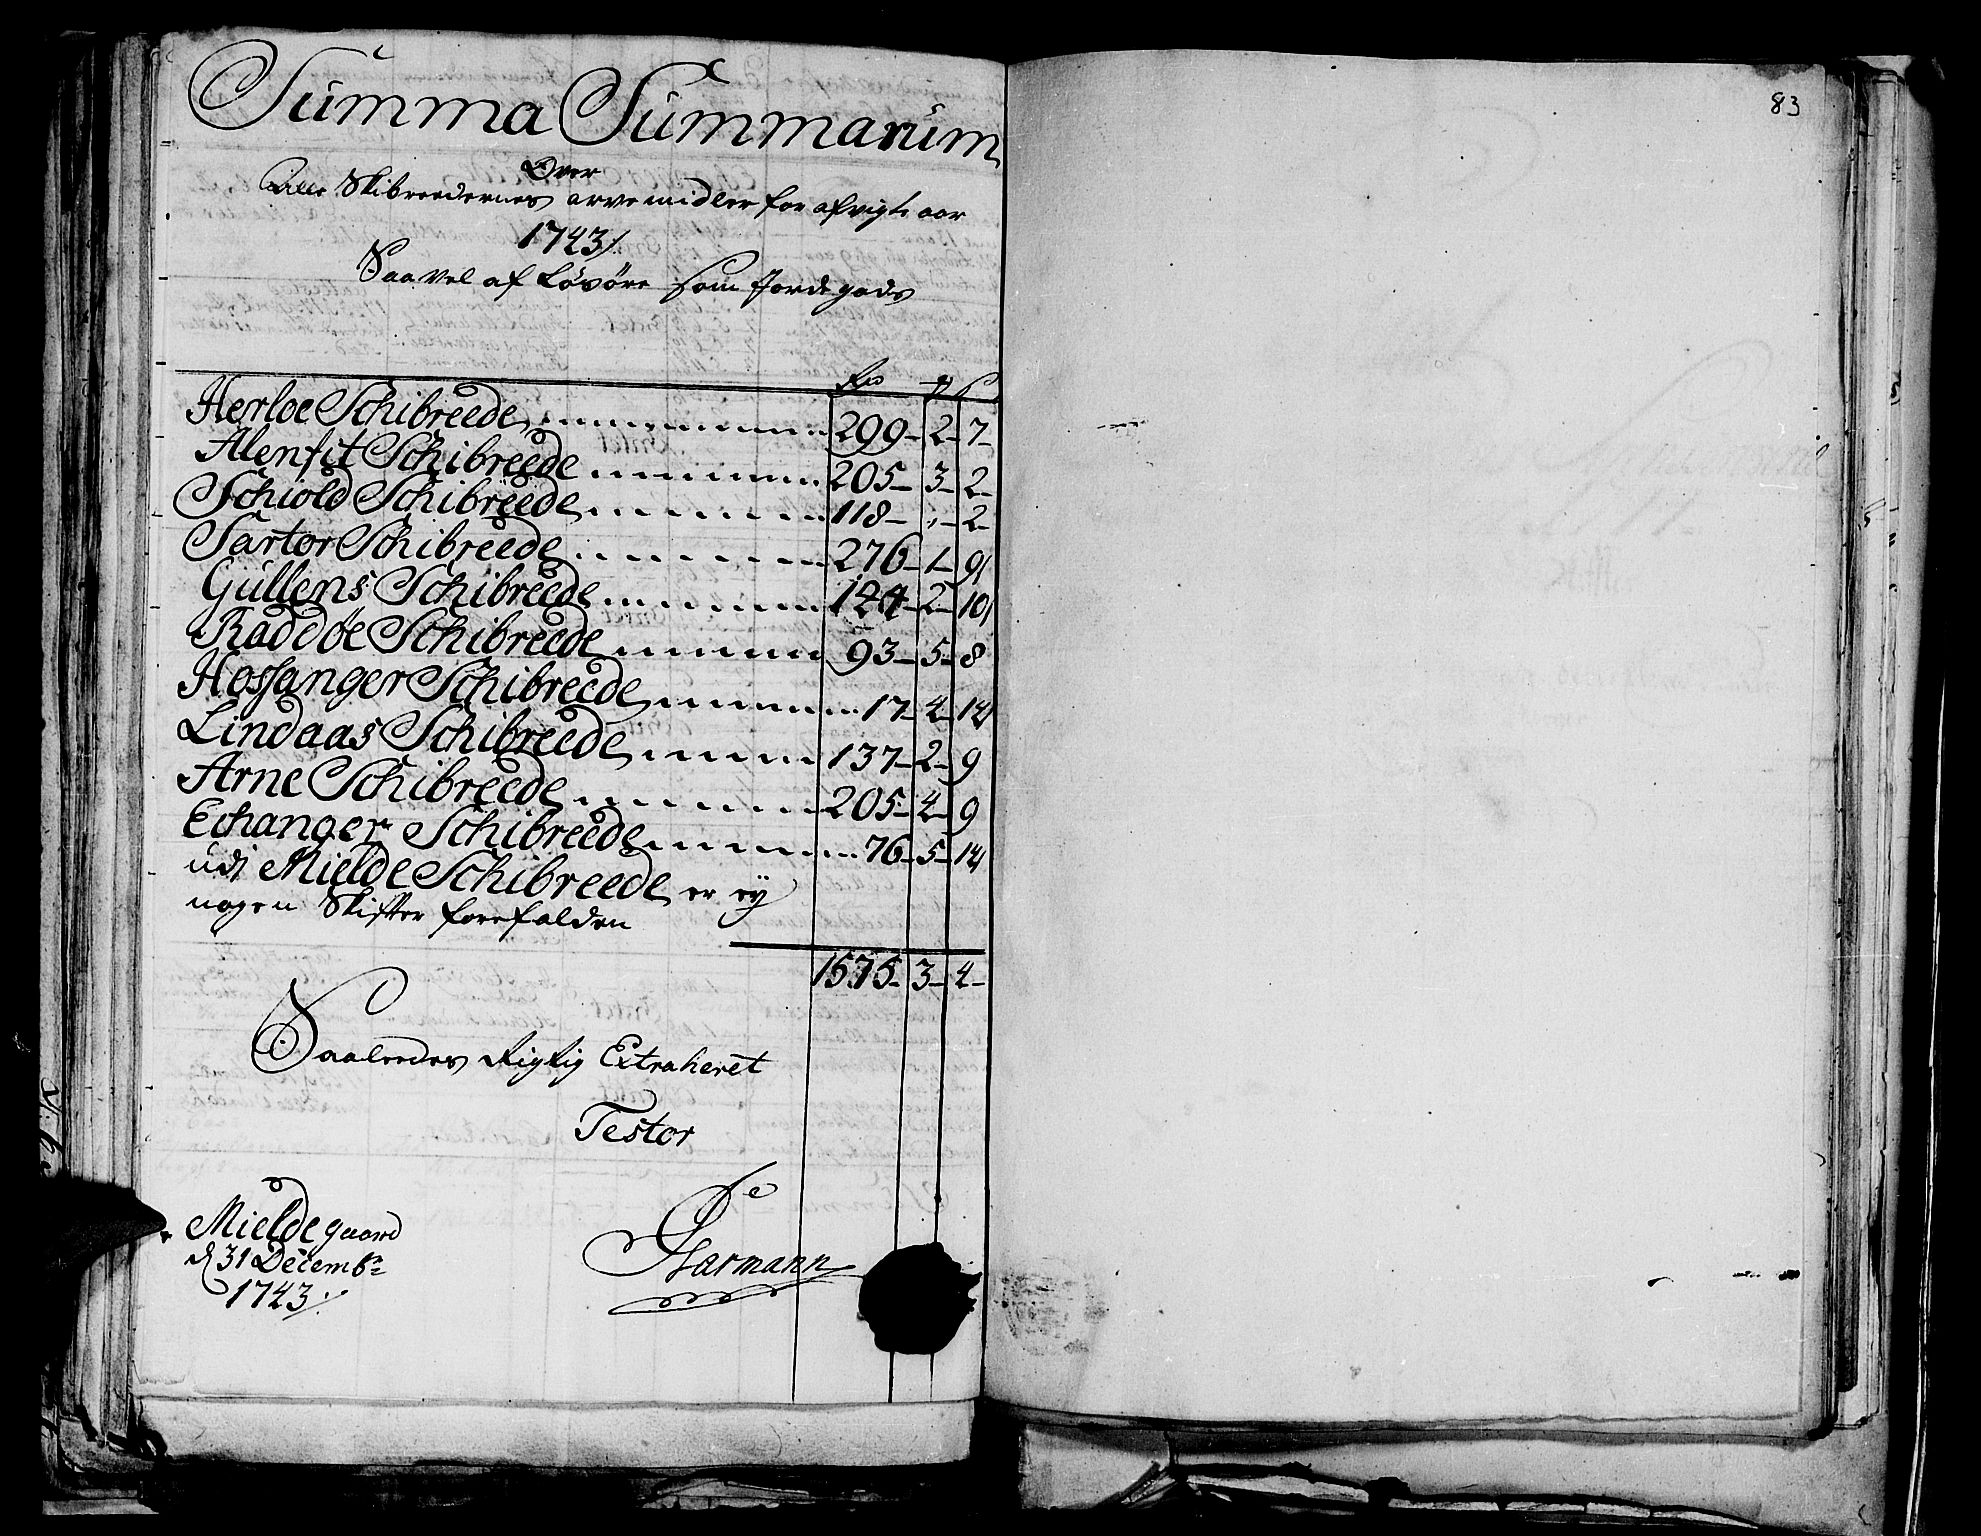 Summa Summarum
Over
Alle Skibreedernes arvemidler for afvigte aar
1743/.
Saavel af Løsøre som Jordegods
Rd
Herløe Schibreede 299 - 2 - 7 -
Alenfit Schibreede 205 - 3 - 2 -
Schiold Schibreede 118 - " - 2 -
Sartor Schibreede 276 - 1 - 9
Gullens Schibreede 124 - 2 - 10
Raddøe Schibreede 93 - 5 - 8
Hosanger Schibreede 17 - 4 - 14
Lindaas Schibreede 137 - 2 - 9
Arne Schibreede 205 - 4 - 9
Echanger Schibreede 76 - 5 - 14
udi Mielde Schibreede er ey
nogen Skifter forefalden
1575 - 3 - 4 -
Saaleedes Rigtig Extraheret
Testor
Mielde gaard
d 31 Decembr
1743/:
Garmann
83